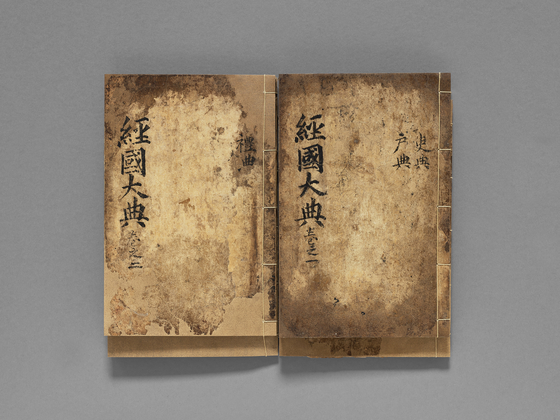 經國大典
之一
吏典
戶典
經國大典
之二
禮典